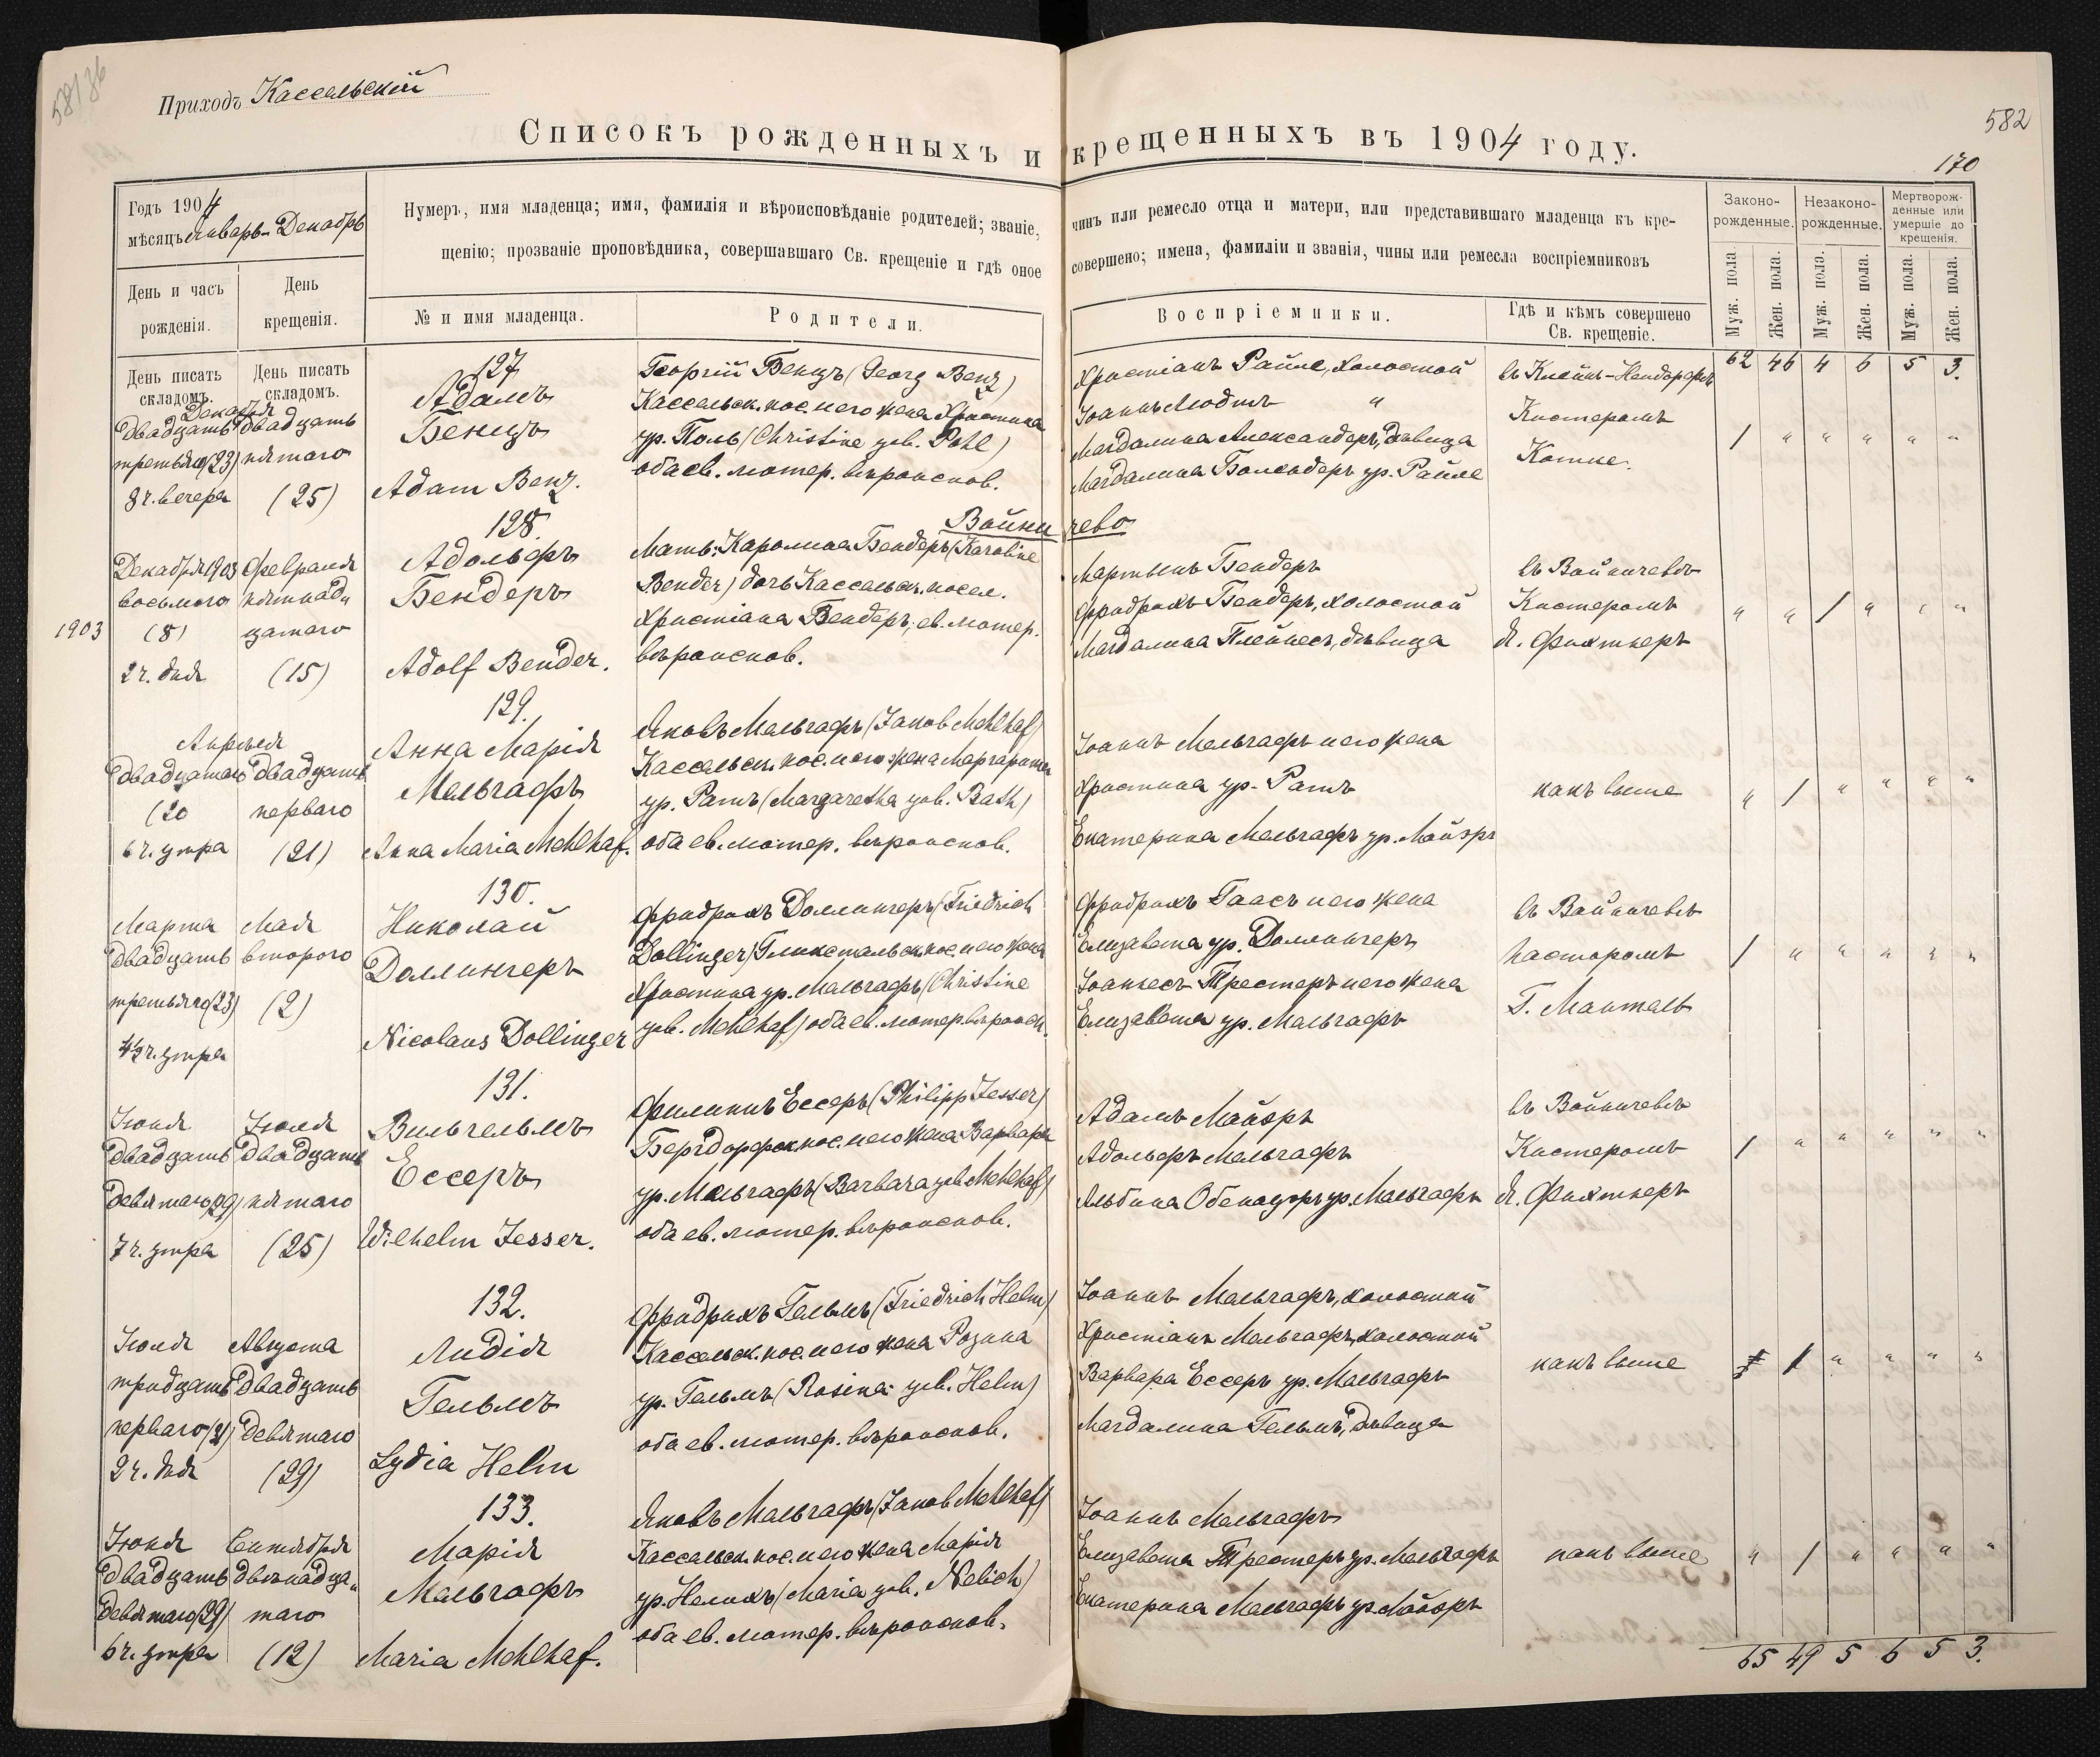 58/86
Приходъ Кассельскій
582
Списокъ рожденныхъ и крещенныхъ въ 1904 году.
170
Годъ 1904
мѣсяцъ Январь-Декабрь
Нумеръ, имя младенца; имя, фамилія и вѣроисповѣданіе родителей; званіе, чинъ или ремесло отца и матери, или представившаго младенца къ кре-
щенію; прозваніе проповѣдника, совершавшаго Св. крещеніе и гдѣ оное совершено; имена, фамиліи и званія, чины или ремесла воспріемниковъ
Законо-
рожденные.
Незаконо-
рожденные.
Мертворож-
денные или
умершіе до
крещенія.
День и часъ
рожденія.
День
крещенія.
№ и имя младенца.
Родители.
Воспріемники.
Гдѣ и кѣмъ совершено
Св. крещеніе.
Муж. пола.
Жен. пола.
Муж. пола.
Жен. пола.
Муж. пола.
Жен. пола.
День писать
складомъ.
День писать
складомъ.
62 46 4 6 5 3.
127
Декабря
Двадцать
третьяго (23)
8 ч. вечера
двадцать
пятаго
(25)
Адамъ
Бенцъ
Adam Benz.
Георгій Бенцъ (Georg Benz)
Кассельск. пос. и его жена Христина
ур. Поль (Christine geb. Pohl)
оба ев. лютер. вѣроиспов.
Христіанъ Райле, холостой
Іоаннъ Людитъ "
Магдалина Александеръ, дѣвица
Магдалина Боллендеръ ур. Райле
въ Клейнъ-Нейдорфѣ
Кистеромъ
Котце.
/ " " " " "
Войничево
128.
1903
Декабря 1903
восьмого
(8)
2 ч. дня
Февраля
пятнад-
цатаго
(15)
Адольфъ
Бендеръ
Adolf Bender.
Мать: Каролина Бендеръ (Karoline
Bender) дочь Кассельск. посел.
Христіана Бендеръ; ев. лютер.
вѣроиспов.
Мартынъ Бендеръ
Фридрихъ Бендеръ, холостой
Магдалина Плейнесъ, дѣвица
въ Войничевѣ
Кистеромъ
Я. Фихтнеръ
" " / " " "
129.
Апрѣля
Двадцатаго
(20
6 ч. утра
двадцать
перваго
(21)
Анна Марія
Мельгафъ
Anna Maria Mehlhaf.
Яковъ Мельгафъ (Jakob Mehlhaf)
Кассельск. пос. и его жена Маргарита
ур. Ратъ (Margaretha geb. Rath)
оба ев. лютер. вѣроиспов.
Іоаннъ Мельгафъ и его жена
Христина ур. Ратъ
Екатерина Мельгафъ ур. Майэръ
какъ выше
" / " " " "
130.
Марта
двадцать
третьяго (23)
4½ ч. утра
Мая
второго
(2)
Николай
Доллингеръ
Nicolaus Dollinger
Фридрихъ Доллингеръ (Friedrich
Dollinger) Глюкстальск. пос. и его жена
Христина ур. Мельгафъ (Christine
geb. Mehlhaf) оба ев. лютер. вѣроисп.
Фридрихъ Гаасъ и его жена
Елизавета ур. Доллингеръ
Іоаннесъ Трестеръ и его жена
Елизавета ур. Мельгафъ
въ Войничевѣ
пасторомъ
Г. Мантель
/ " " " " "
131.
Іюня
двадцать
девятаго (29)
7 ч. утра
Іюля
двадцать
пятаго
(25)
Вильгельмъ
Ессеръ
Wilhelm Jesser.
Филиппъ Ессеръ (Philipp Jesser)
Бергдорфск. пос. и его жена Варвара
ур. Мельгафъ (Barbara geb. Mehlhaf)
оба ев. лютер. вѣроиспов.
Адамъ Майэръ
Адольфъ Мельгафъ
Альбина Обенауеръ ур. Мельгафъ
въ Войничевѣ
Кистеромъ
Я. Фихтнеръ
/ " " " " "
132.
Іюля
тридцать
перваго (31)
2 ч. дня
Августа
двадцать
девятаго
(29)
Лидія
Гельмъ
Lydia Helm
Фридрихъ Гельмъ (Friedrich Helm)
Кассельск. пос. и его жена Розина
ур. Гельмъ (Rosina geb. Helm)
оба ев. лютер. вѣроиспов.
Іоаннъ Мельгафъ, холостой
Христіанъ Мельгафъ, холостой
Варвара Ессеръ ур. Мельгафъ
Магдалина Гельмъ, дѣвица
какъ выше
/ " " " "
133.
Іюня
двадцать
девятаго (29)
6 ч. утра
Сентября
двѣнадца-
таго
(12)
Марія
Мельгафъ
Maria Mehlhaf.
Яковъ Мельгафъ (Jakob Mehlhaf)
Кассельск. пос. и его жена Марія
ур. Нелихъ (Maria geb. Nelich)
оба ев. лютер. вѣроиспов.
Іоаннъ Мельгафъ
Елизавета Трестеръ ур. Мельгафъ
Екатерина Мельгафъ ур. Майэръ
какъ выше
" / " " " "
65 49 5 6 5 3.